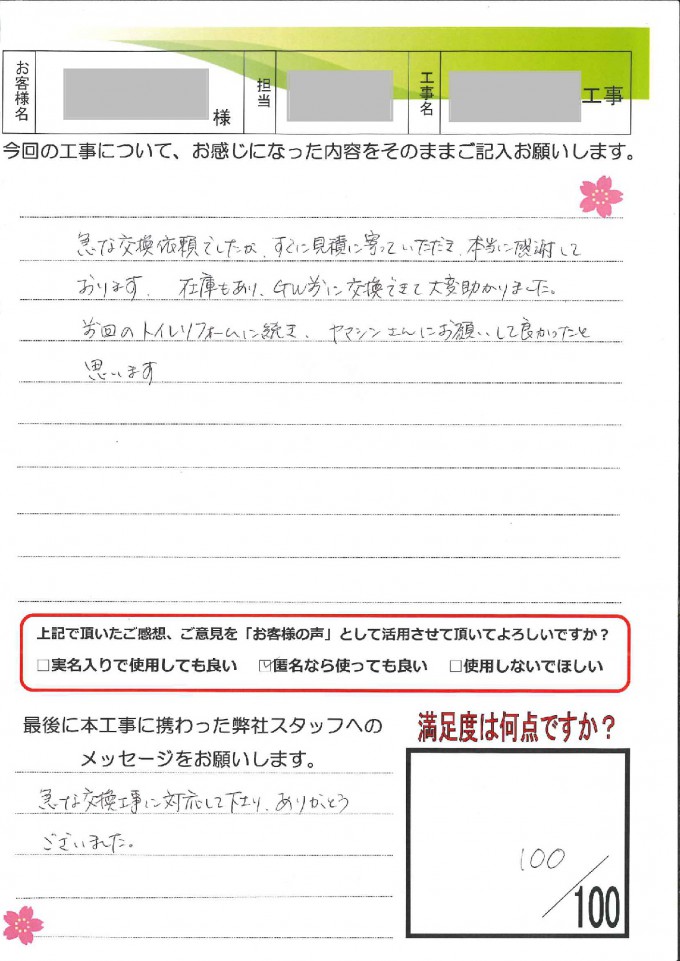 お客様名 様 担当 工事名 工事
今回の工事について、お感じになった内容をそのままご記入お願いします。
急な交換依頼でしたが、すぐに見積に寄っていただき、本当に感謝して
おります。 在庫もあり、GW前に交換できて大変助かりました。
前回のトイレリフォームに続き、ヤマシンさんにお願いして良かったと
思います
上記で頂いたご感想、ご意見を「お客様の声」として活用させて頂いてよろしいですか？
□実名入りで使用しても良い ☑匿名なら使っても良い □使用しないでほしい
最後に本工事に携わった弊社スタッフへの
メッセージをお願いします。
急な交換工事に対応して下さり、ありがとう
ございました。
満足度は何点ですか？
100/100